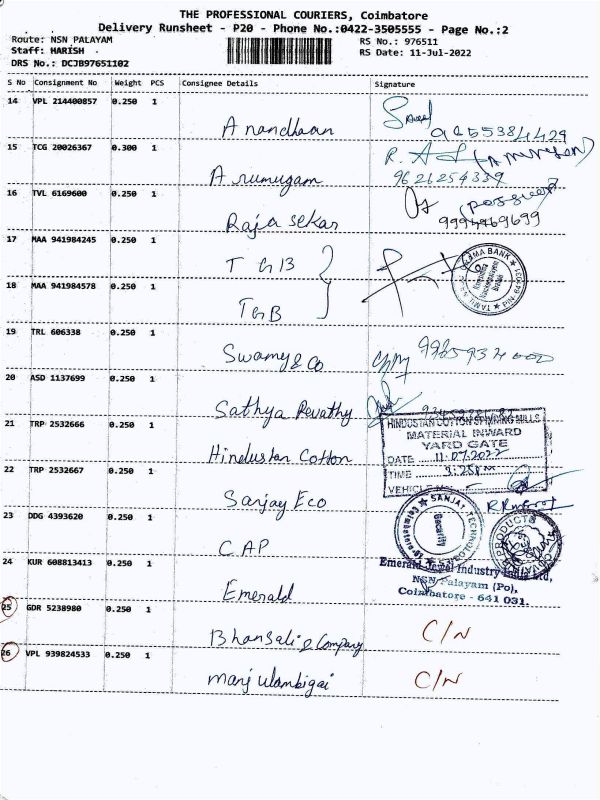 THE PROFESSIONAL COURIERS, Coimbatore
Delivery Runsheet - P20 - Phone No.:0422-3505555 - Page No.:2
Route: NSN PALAYAM
RS No.: 976511
Staff: HARISH
RS Date: 11-Jul-2022
DRS No.: DCJB97651102
S No Consignment No Weight PCS Consignee Details Signature
14 VPL 214400857 0.250 1
Anandhaan
9655384429
15 TCG 20026367 0.300 1
Arumugam
9626254339
16 TVL 6169600 0.250 1
Raja sekar
9994969699
17 MAA 941984245 0.250 1
TGB
18 MAA 941984578 0.250 1
TGB
19 TRL 606338 0.250 1
Swamy & Co
20 ASD 1137699 0.250 1
Sathya Revathy
21 TRP 2532666 0.250 1
Hindustan Cotton
HINDUSTAN COTTON SPINNING MILLS
MATERIAL INWARD
YARD GATE
DATE 11.07.2022
TIME
VEHICLE
22 TRP 2532667 0.250 1
Sanjay Eco
SANJAY TECHNOLOG
Security
23 DDG 4393620 0.250 1
C.A.P
PRODUCTS
24 KUR 608813413 0.250 1
Emerald
Emerald Jewel Industry India Ltd,
NSN Palayam (Po),
Coimbatore - 641 031.
25 GDR 5238980 0.250 1
Bhansali & Company
C/N
26 VPL 939824533 0.250 1
Manj ulambigai
C/N